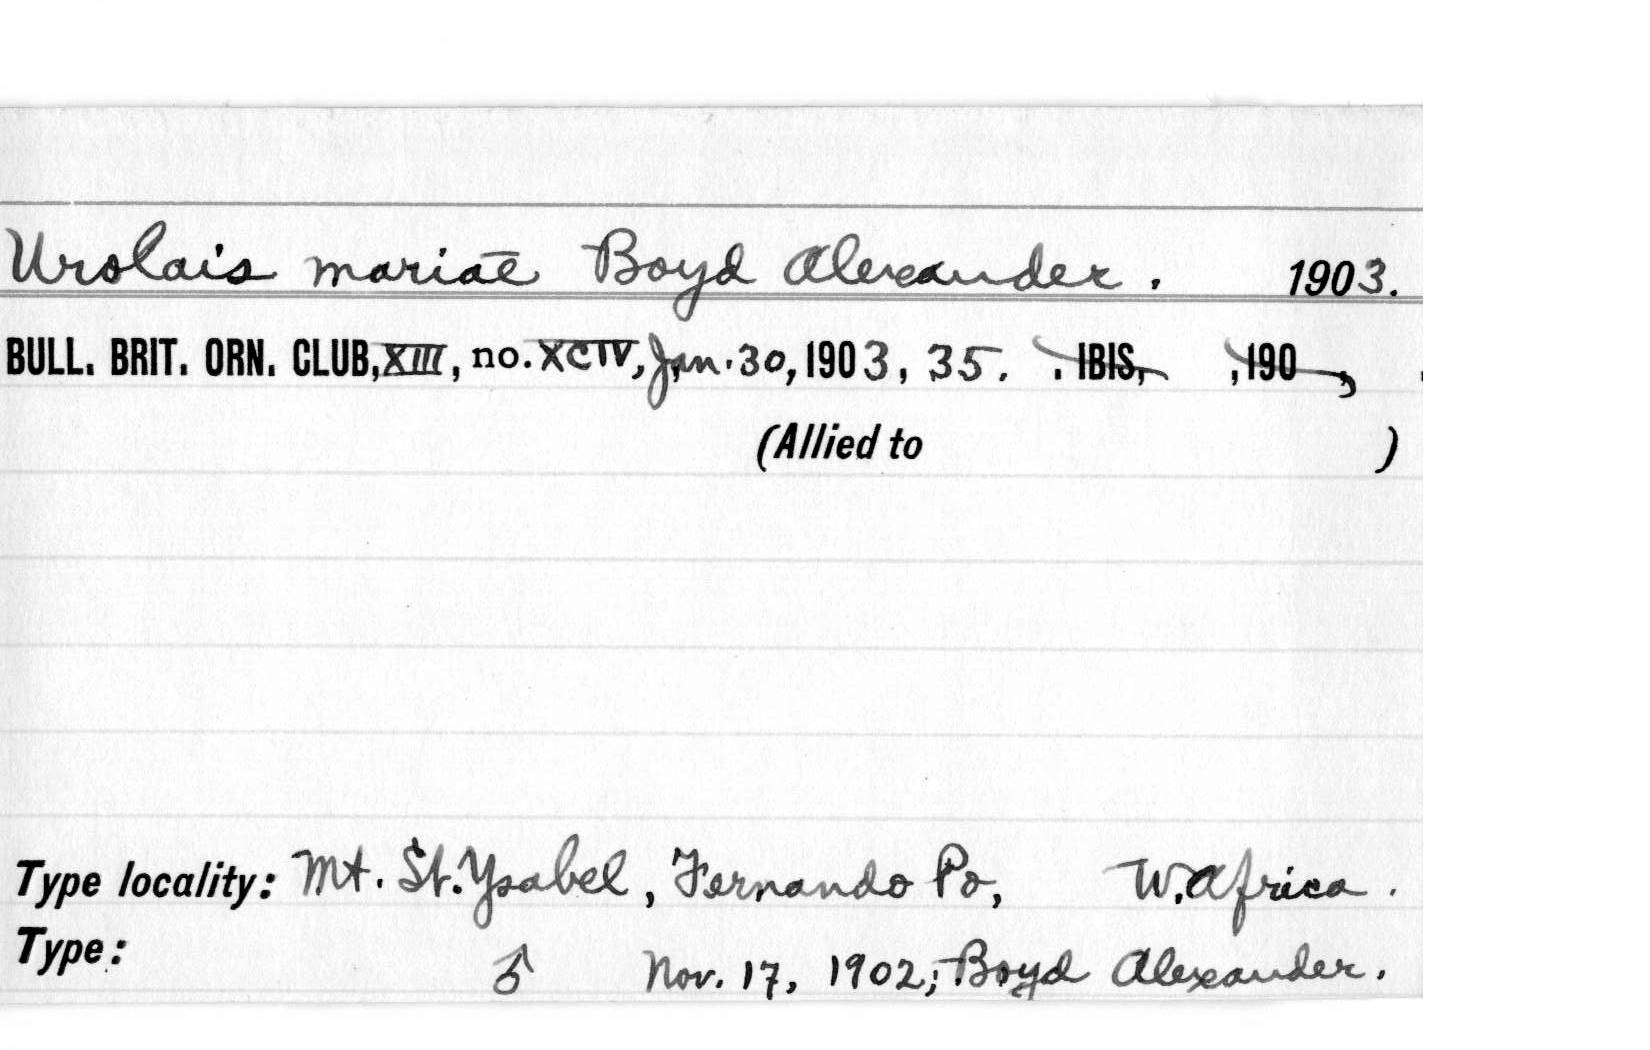 Urolais mariae Boyd Alexander. 1903.
BULL. BRIT. ORN. CLUB, XIII, no. XCIV, Jan. 30, 1903, 35. . IBIS, , 190 , .
(Allied to )
Type locality: Mt. St. Ysabel, Fernando Po, W. Africa.
Type: ♂ Nov. 17, 1902; Boyd Alexander.